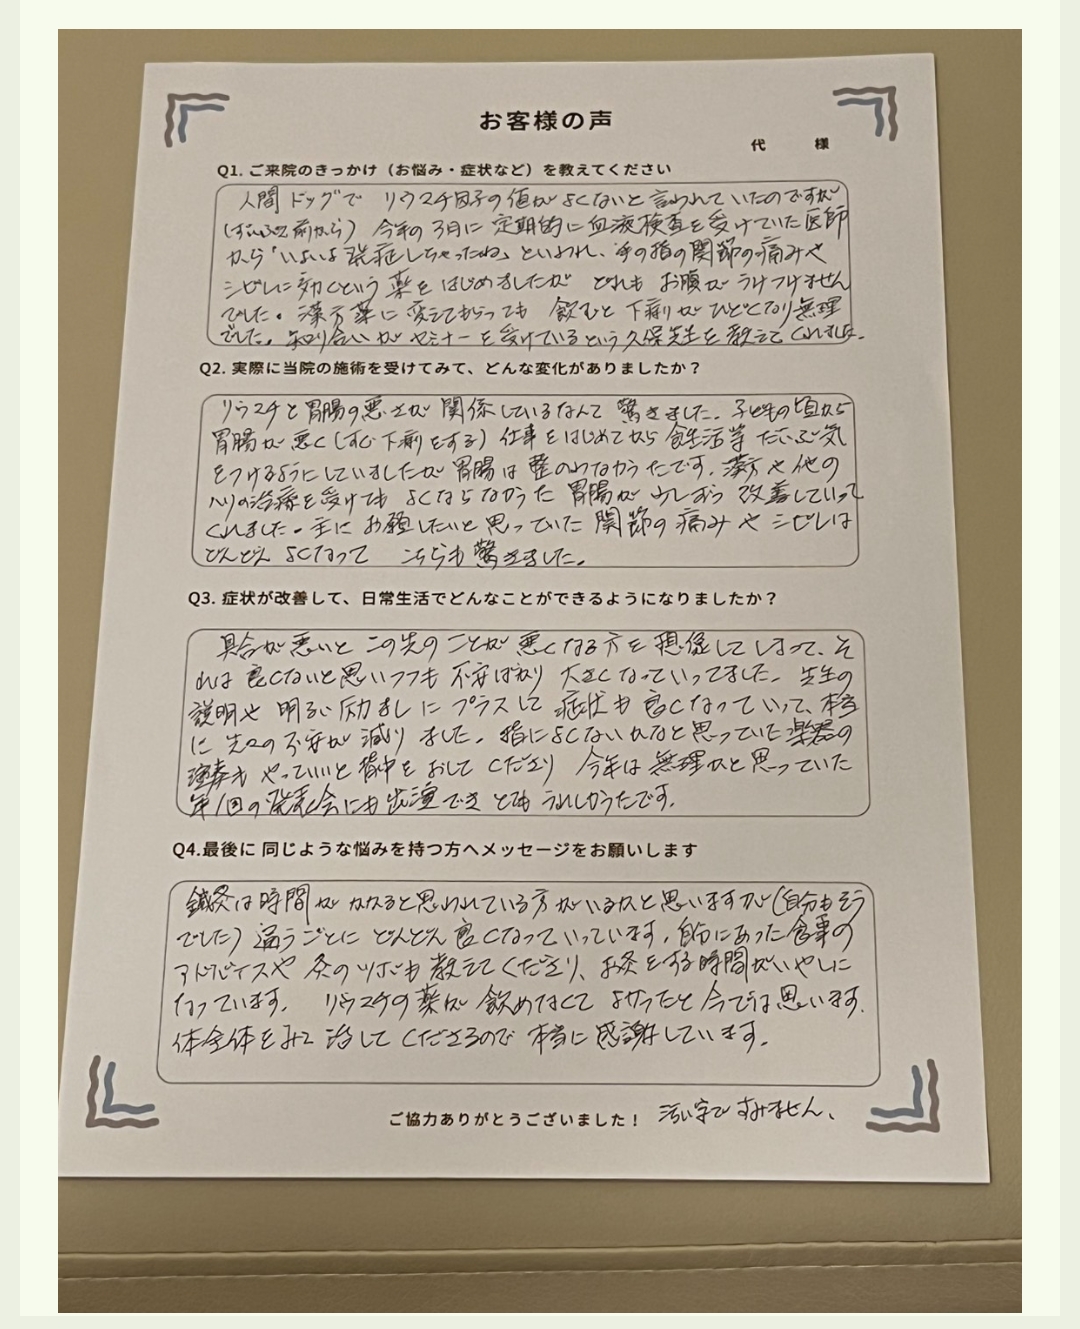 お客様の声
代 様
Q1. ご来院のきっかけ（お悩み・症状など）を教えてください
人間ドッグで リウマチ因子の値がよくないと言われていたのですが
(ずいぶん前から) 今年の3月に定期的に血液検査を受けていた医師
から「いよいよ発症しちゃったね」といわれ、手の指の関節の痛みや
シビレに効くという薬をはじめましたが どれもお腹がうけつけません
でした。漢方薬に変えてもらっても 飲むと下痢がひどくなり無理
でした。知り合いがセミナーを受けているという久保先生を教えてくれました。
Q2. 実際に当院の施術を受けてみて、どんな変化がありましたか？
リウマチと胃腸の悪さが関係しているなんて驚きました。子どもの頃から
胃腸が悪く(すぐ下痢をする) 仕事をはじめてから食生活等だいぶ気
をつけるようにしていましたが胃腸は整のわなかったです。漢方や他の
ハリの治療を受けてもよくならなかった胃腸が少しずつ改善していって
くれました。主にお願したいと思っていた関節の痛みやシビレは
どんどんよくなって こちらも驚きました。
Q3. 症状が改善して、日常生活でどんなことができるようになりましたか？
具合が悪いとこの先のことが悪くなる方を想像してしまって、そ
れは良くないと思いつつも不安ばかり大きくなっていってました。先生の
説明や明るい励ましにプラスして症状も良くなっていって、本当
に先々の不安が減りました。指によくないかなと思っていた楽器の
演奏もやっていいと背中をおしてくださり 今年は無理かと思っていた
年1回の発表会にも出演できとてもうれしかったです。
Q4.最後に 同じような悩みを持つ方へメッセージをお願いします
鍼灸は時間がかかると思われている方がいるかと思いますが(自分もそう
でした) 通うごとにどんどん良くなっていっています。自分にあった食事の
アドバイスや灸のツボも教えてくださり、お灸をする時間がいやしに
なっています。 リウマチの薬が飲めなくてよかったと今では思います。
体全体をみて治してくださるので本当に感謝しています。
ご協力ありがとうございました！ 汚い字ですみません。